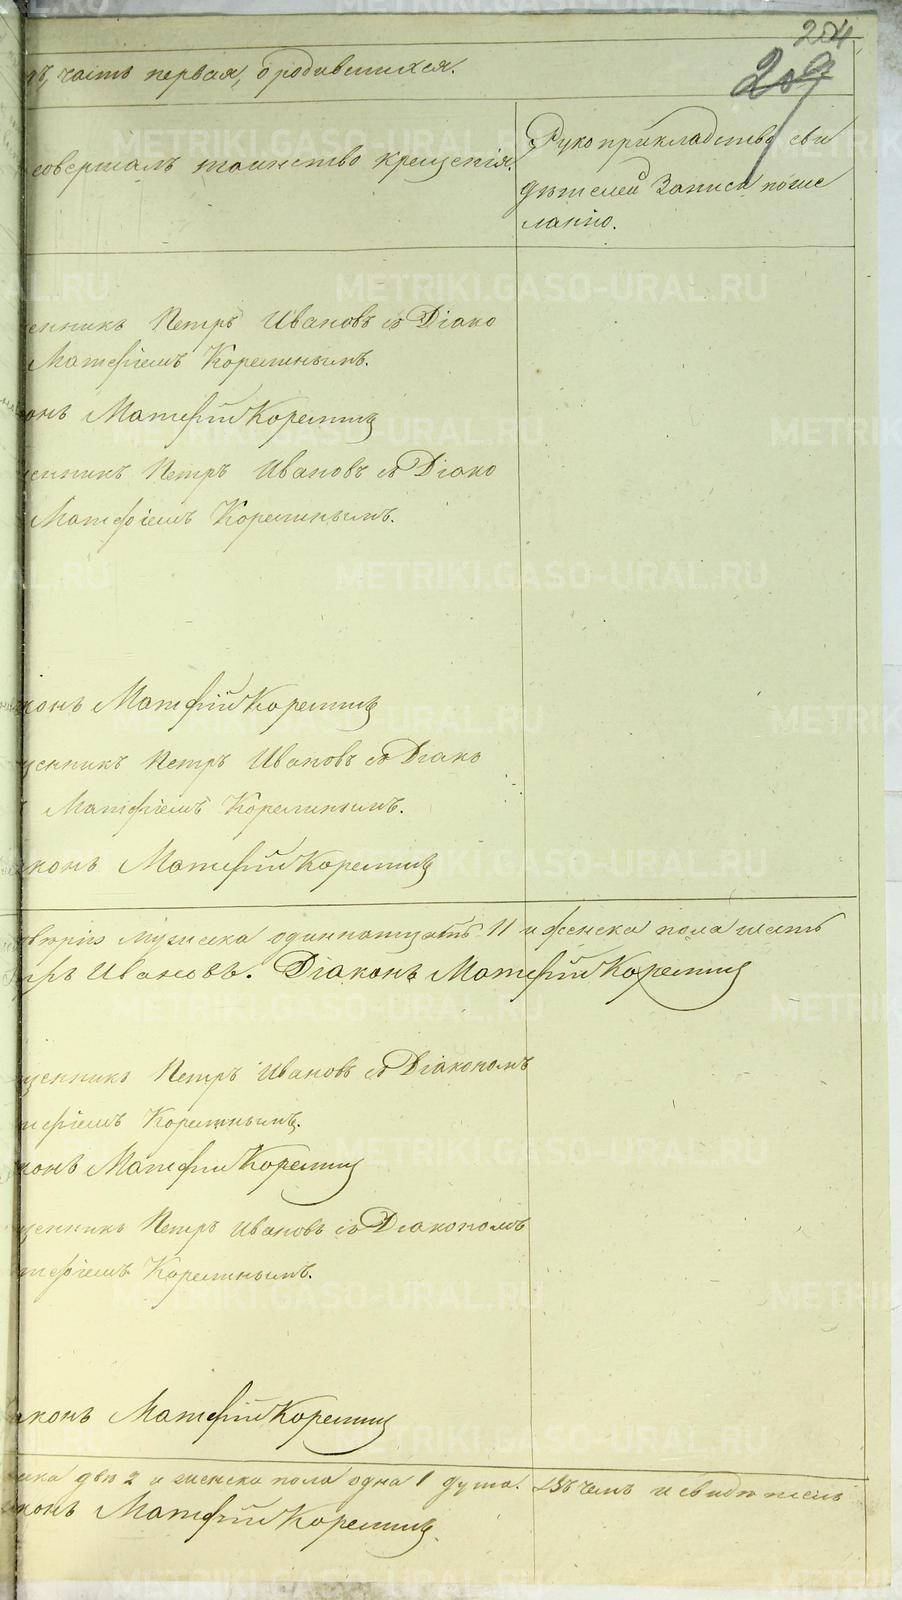 204
209
ъ, часть первая, о родившихся.
совершалъ таинство крещенія.
Рукоприкладство сви
дѣтелей Записи по же
ланію.
енникъ Петръ Ивановъ съ Діако
Матѳіемъ Корелинымъ.
онъ Матѳій Корелинъ
щенникъ Петръ Ивановъ съ Діако
Матѳіемъ Корелинымъ.
конъ Матѳій Корелинъ
щенникъ Петръ Ивановъ съ Діако
Матѳіемъ Корелинымъ.
конъ Матѳій Корелинъ
мужеска одиннатцать 11 и женска пола шесть
тръ Ивановъ. Діаконъ Матѳій Корелинъ
щенникъ Петръ Ивановъ съ Діакономъ
тѳіемъ Корелинымъ.
конъ Матѳій Корелинъ
щенникъ Петръ Ивановъ съ Діакономъ
тѳіемъ Корелинымъ.
конъ Матѳій Корелинъ
ска два 2 и женска пола одна 1 душа. Въ чемъ и свидѣтель
конъ Матѳій Корелинъ
METRIKI.GASO-URAL.RU